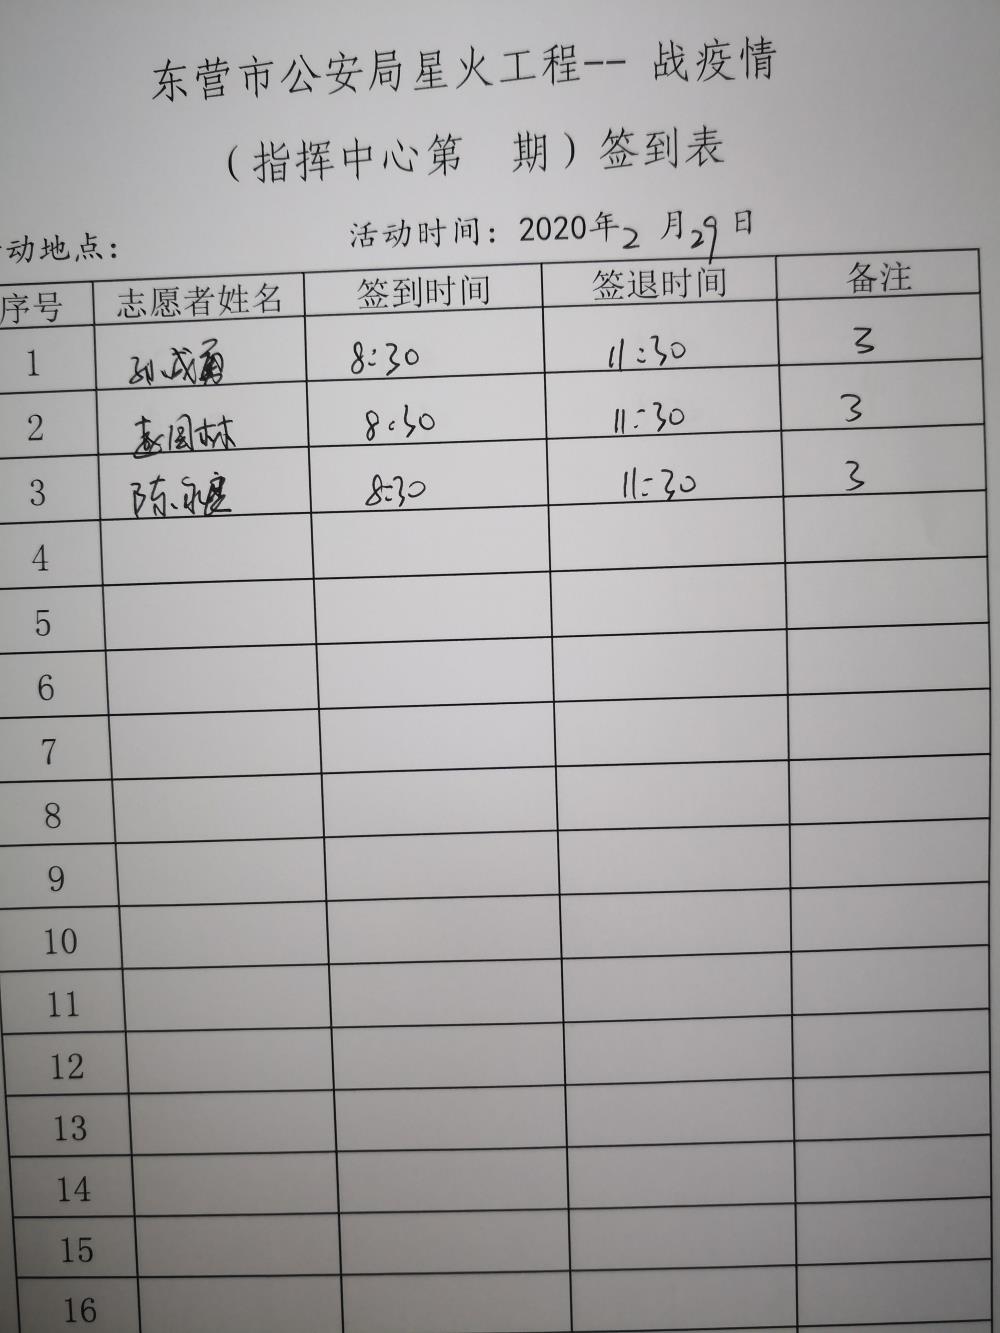 东营市公安局星火工程-- 战疫情
（指挥中心第 期）签到表
动地点： 活动时间：2020年2月29日
序号 志愿者姓名 签到时间 签退时间 备注
1 孙成勇 8:30 11:30 3
2 国林 8:30 11:30 3
3 陈永 8:30 11:30 3
4
5
6
7
8
9
10
11
12
13
14
15
16